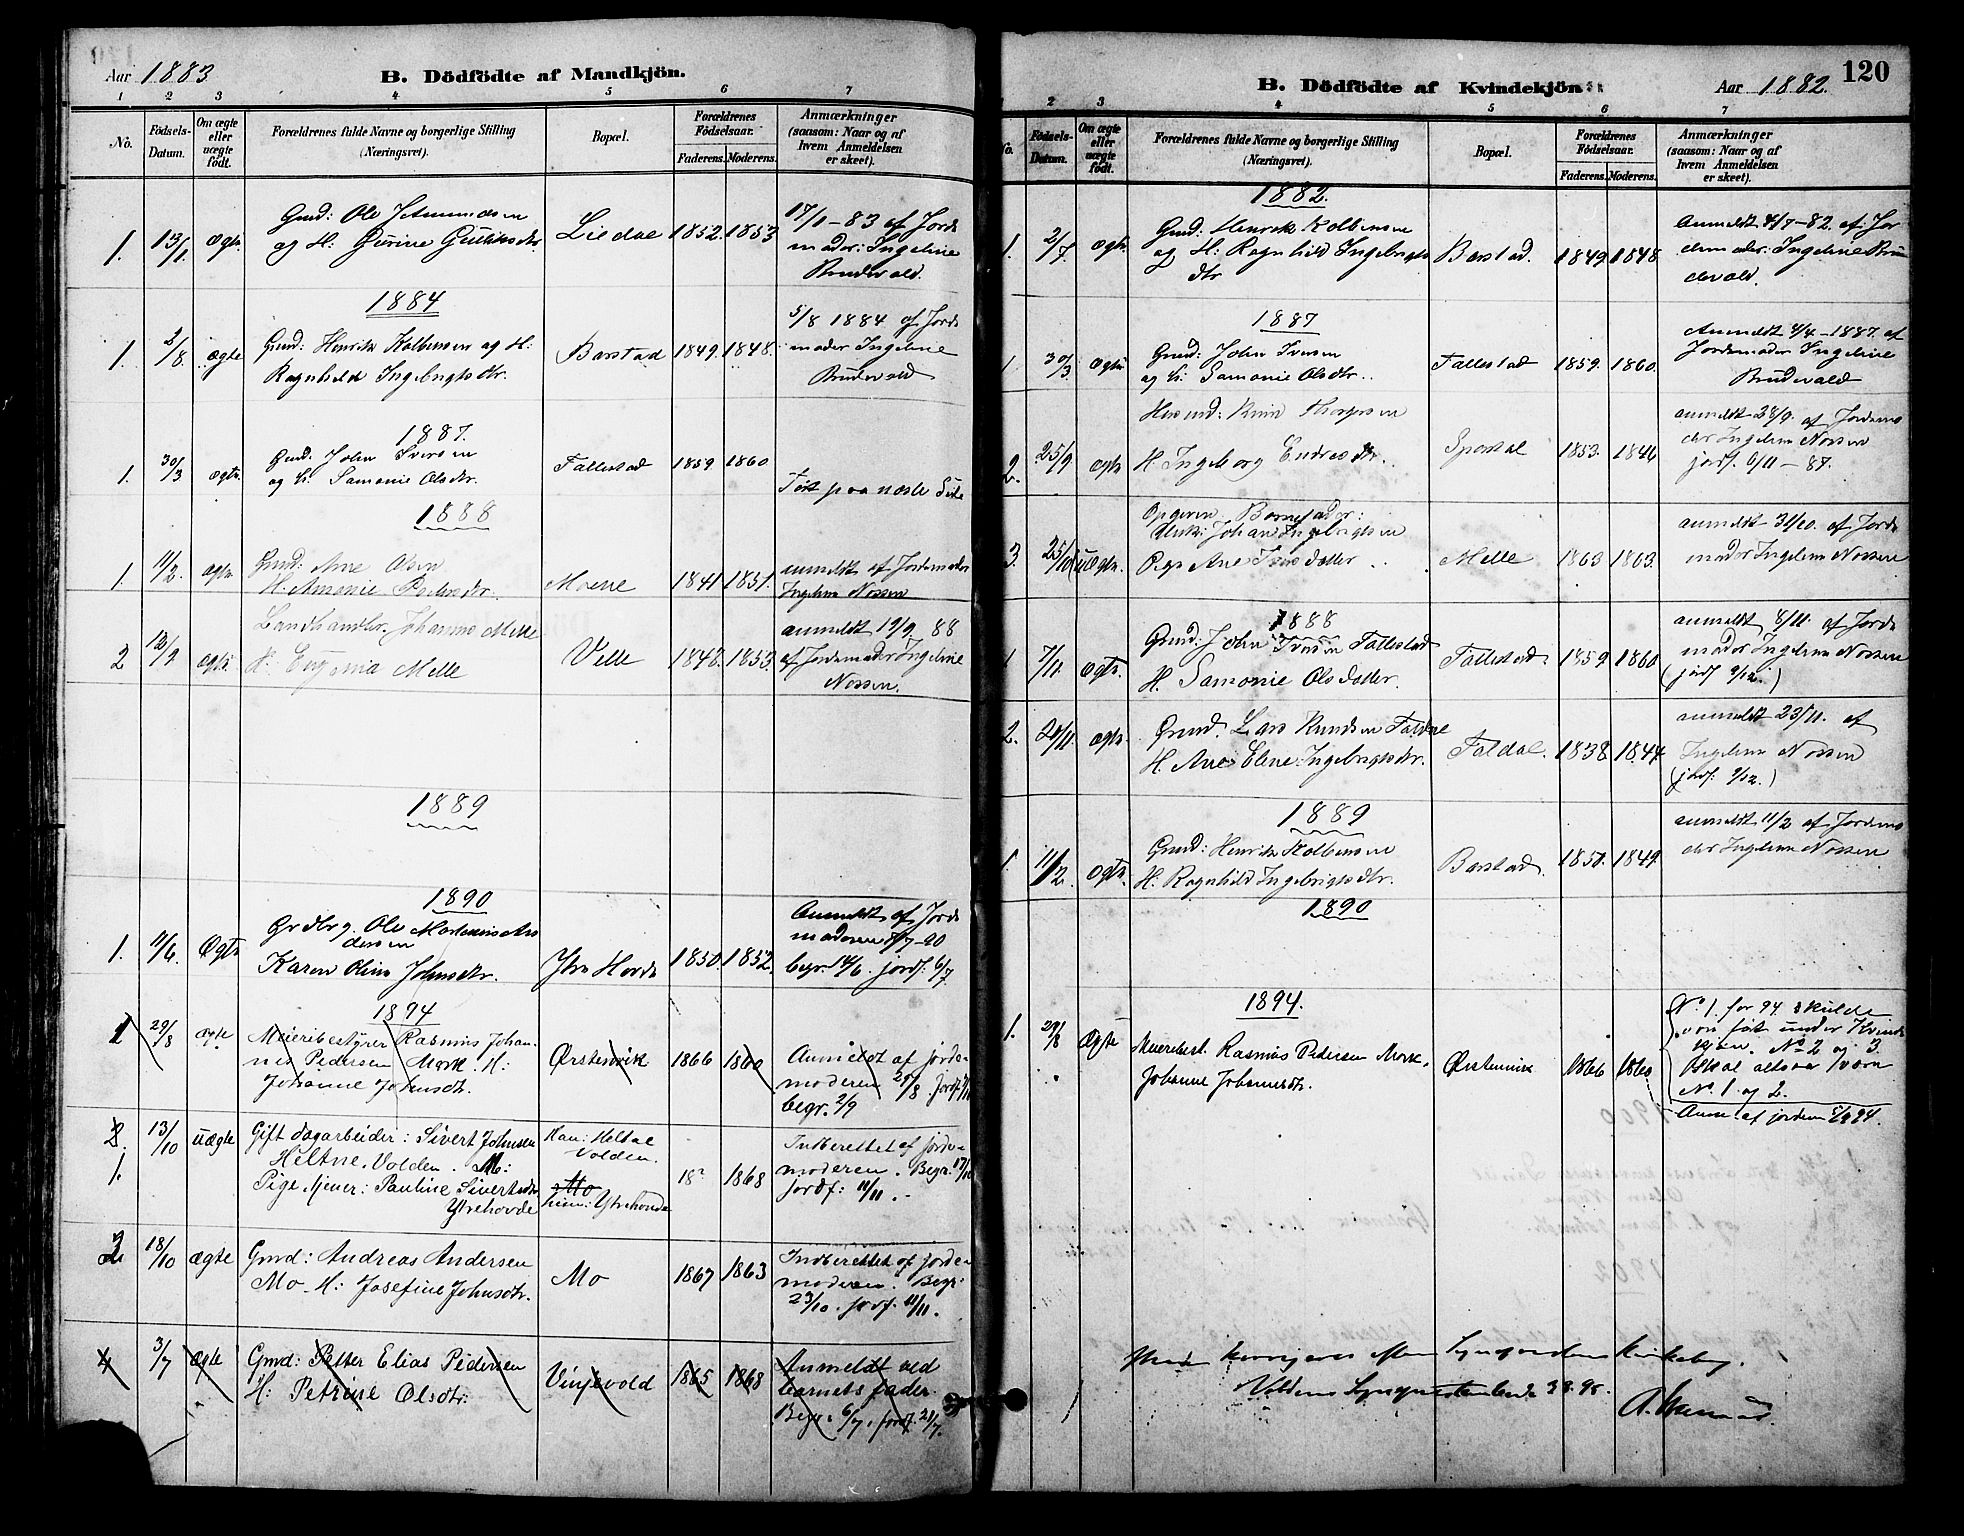 Aar 1883 B. Dödfödte af Mandkjön.
1 2 3 4 5 6 7
No. Födsels-Datum. Om ægte eller uægte födt. Forældrenes fulde Navne og borgerlige Stilling (Næringsvei). Bopæl. Forældrenes Födselsaar. Faderens. Moderens. Anmærkninger (saasom: Naar og af hvem Anmeldelsen er skeet).
1. 13/1. ægte Gmd: Ole
og H: Gurine Liedal 1852. 1853 17/1-83 af Jorde
moder: Ingeline
Brudevold.
1884
1. 2/8. ægte Gmd: Henrik Kolbensen og H:
Ragnhild Ingebrigtsdtr. Barstad 1849. 1848. 5/8 1884 af Jorde
moder Ingeline
Brudevold
1887.
1. 30/3 ægte Gmd. John Iversen
og H. Samonie Olsdtr. Follestad 1859 1860. Føit paa næste Side
1888
1. 11/2. ægte Gmd: Ane Olsen
H. Amonie Pedersdtr. Moene 1841 1851. anmeldt af Jordemoder
Ingeline Nossen
2 12/9 ægte Landhandler. Johannes Melle
H. Eugenia Melle Velle 1848. 1853. anmeldt 19/9 88
af Jordemoder Ingeline
Nossen.
1889
1890
1. 11/6. Ægte Grdbrg. Ole Martinus An
dersen
Karen Oline Johnsdtr. Ytre Hovde 1850. 1852. Anmeldt af Jorde
moderen 5/7-90
begr. 14/6. jordf. 6/7
1894
1 29/8 ægte Meieribestyrer Rasmus Johan-
nes Pedersen Mork. H:
Johanne Johnsdtr. Ørstenvik 1866 1860 Anmeldt af jorde-
moderen 29/8. Jordf.
begr. 2/9
2. 1. 13/10 uægte Gift dagarbeider: Sivert Johnsen
Heltne, Volden. M:
Pige Meier: Pauline Sivertsdtr
Ytrehovde Han: Heltne
Volden.
Mo
hun: Ytrehovde 18? 1868 Indberettet af jorde-
moderen. Begr. 17/10
Jordf: 11/11. -
3 2. 18/10 ægte Gmd: Andreas Andersen
Mo. H: Josefine Johnsdtr. Mo 1867 1863 Indberettet af jorde
moderen. Begr:
23/10. jordf. 11/11.
4 3/7 ægte Gmd: Petter Elias Pedersen
H: Petrine Olsdtr. Vinjevold 1865 1868 Anmeldt ved
barnets fader
Begr. 6/7. jordf. 21/7.
B. Dödfödte af Kvindekjön Aar 1882. 120
2 3 4 5 6 7
No. Födsels-Datum. Om ægte eller uægte födt. Forældrenes fulde Navne og borgerlige Stilling (Næringsvei). Bopæl. Forældrenes Födselsaar. Faderens. Moderens. Anmærkninger (saasom: Naar og af hvem Anmeldelsen er skeet).
1882.
1. 2/7. ægte Gmd: Henrik Kolbensen
og H: Ragnhild Ingebrigts
dtr Barstad. 1849 1848. Anmeldt /7-82 af Jor
demoder: Ingeline Bru
devold.
1887
1 30/3 ægte Gmd: John Iversen
og H. Samonie Olsdtr.. Follestad 1859. 1860. Anmeldt 4/4-1887. af
Jordemoder Ingeline
Brudevold
2. 25/9 ægte Husmd: Knut
H. Ingeborg Endresdtr. 1853. 1846 anmeldt 28/9. af Jordemo
der Ingeline Nossen
jordf. 6/11-87.
3. 25/10 uægte. Opgiven Barnefader:
Johan Ingebrigtsen
Pige Ane Iversdatter Melle 1863 1863. anmeldt 31/10. af Jorde
moder Ingeline Nossen
1888
1 7/11. ægte. Gmd: John Iversen Follestad
H. Samonie Olsdatter. Follestad. 1859. 1860 anmeldt 8/11. af Jorde
moder Ingeline Nossen
(jordf 9/12.)
2. 20/11 ægte. Gmd. Lars Knudsen Foldal
H. Ane Elene Ingebrigtsdtr. Foldal. 1838. 1847. anmeldt 23/11. af
Ingeline Nossen
(jordf. 9/12.)
1889
1. 11/2. ægte. Gmd: Henrik Kolbensen
H. Ragnhild Ingebrigtsdtr. Barstad. 1850. 1849. anmeldt 11/2 af Jordemo
der Ingeline Nossen
1890
1894.
1. 29/8 Ægte Meieribest. Rasmus Pedersen Mork.
Johanne Johannesdtr. Ørstenvik 1866 1860 No 1. for 94 skulde
være føit under Kvinde
kjøn. No 2 og 3
skal altsaa være
No 1 og 2.
Anm. af jordem. 94.